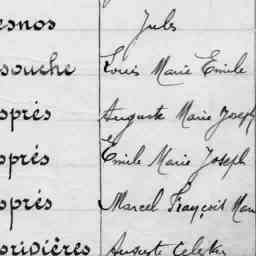 esnos Jules
souche Louis Marie Emile
sprés Auguste Marie Joseph
sprés Emile Marie Joseph
sprés Marcel François Marie
orivières Auguste Celestin